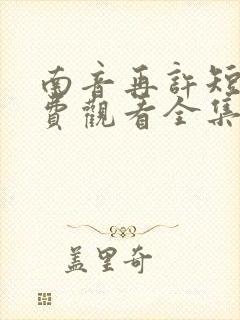 南音再許短
費觀看全集
盖里奇